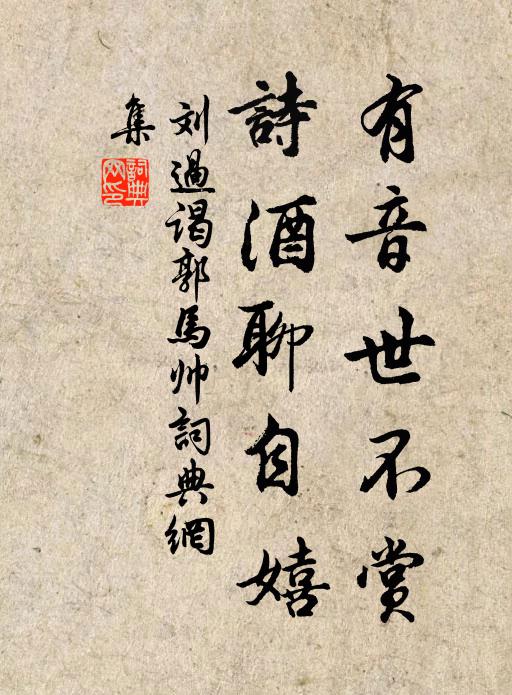 有音世不赏
詩酒聊自嬉
刘過谒郭馬帅詞典網
集
詞典
网印